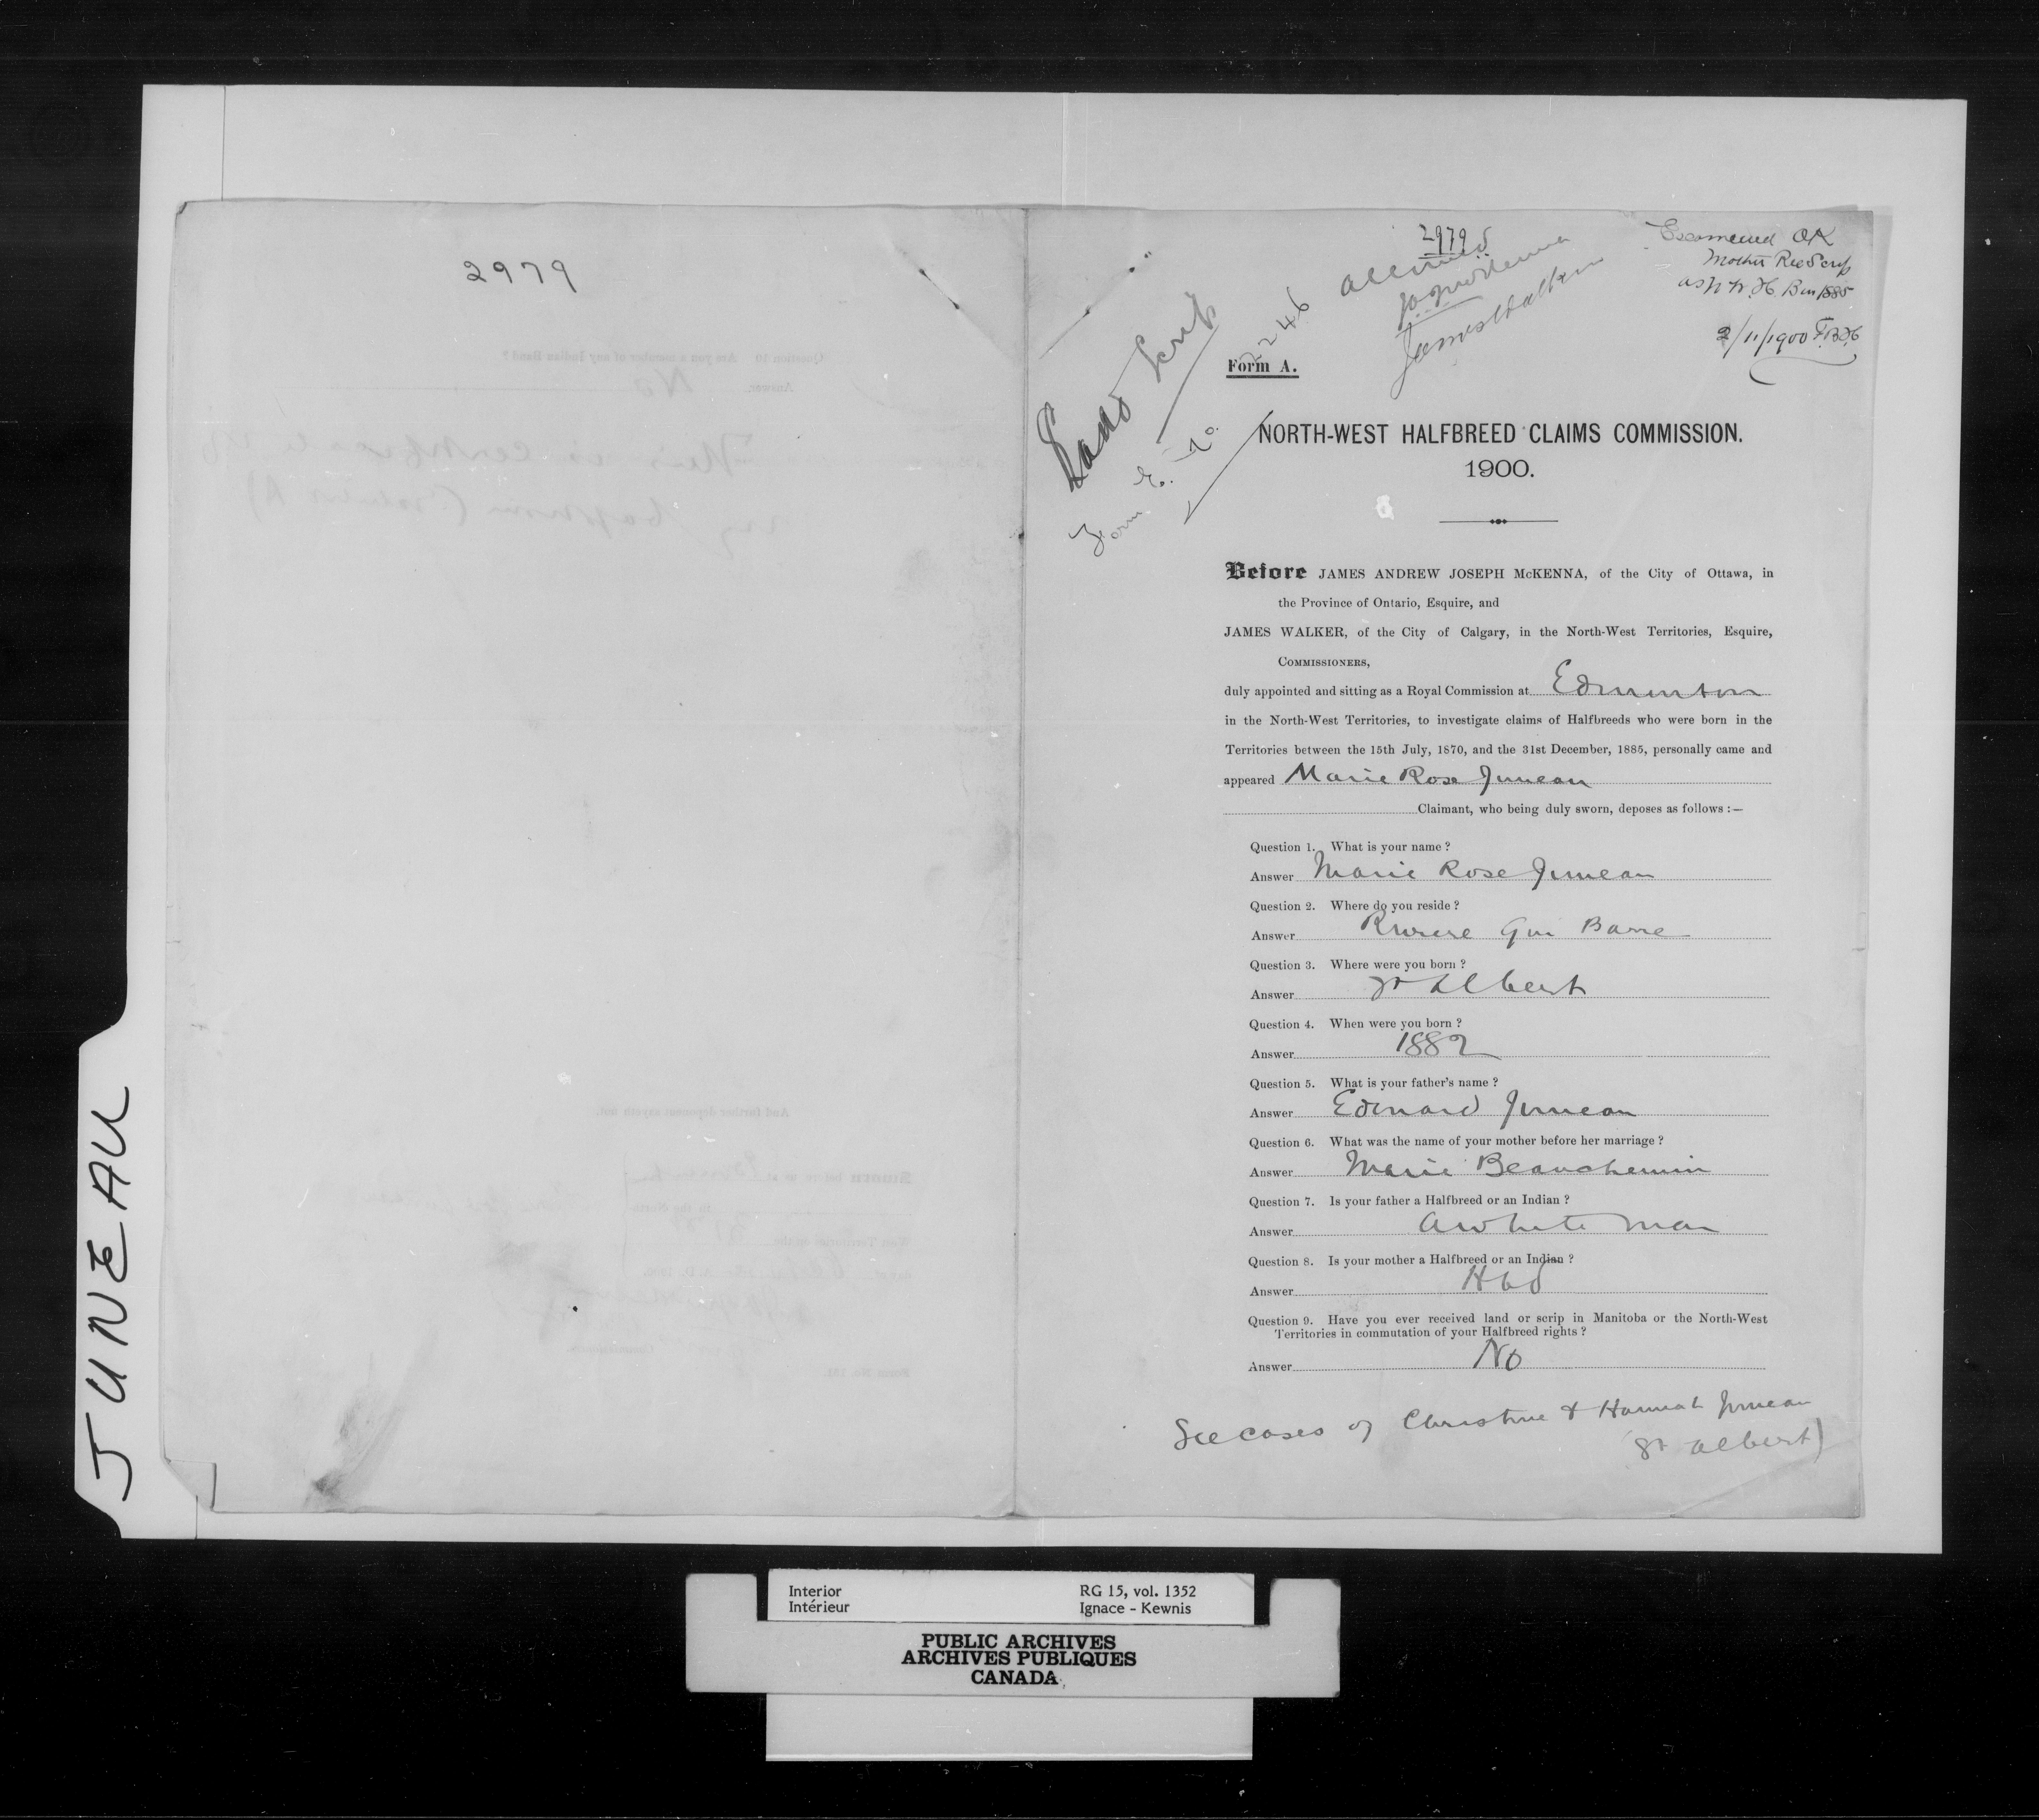 2979
JUNEAU
2979
Allowed
JAJ McKenna
James Walker
Examined OK
Mother Rec Scrip
as N.W.H.B. in 1885
2/11/1900 F.B.H.
Land Scrip
Form E. No. 2246
Form A.
NORTH-WEST HALFBREED CLAIMS COMMISSION.
1900.
Before JAMES ANDREW JOSEPH McKENNA, of the City of Ottawa, in
the Province of Ontario, Esquire, and
JAMES WALKER, of the City of Calgary, in the North-West Territories, Esquire,
COMMISSIONERS,
duly appointed and sitting as a Royal Commission at Edmonton
in the North-West Territories, to investigate claims of Halfbreeds who were born in the
Territories between the 15th July, 1870, and the 31st December, 1885, personally came and
appeared Marie Rose Juneau
Claimant, who being duly sworn, deposes as follows :—
Question 1. What is your name ?
Answer Marie Rose Juneau
Question 2. Where do you reside ?
Answer Riviere Qui Barre
Question 3. Where were you born ?
Answer St Albert
Question 4. When were you born ?
Answer 1882
Question 5. What is your father's name ?
Answer Edouard Juneau
Question 6. What was the name of your mother before her marriage ?
Answer Marie Beauchemin
Question 7. Is your father a Halfbreed or an Indian ?
Answer A white man
Question 8. Is your mother a Halfbreed or an Indian ?
Answer Hbd
Question 9. Have you ever received land or scrip in Manitoba or the North-West
Territories in commutation of your Halfbreed rights ?
Answer No
See cases of Christine & Hannah Juneau
(St Albert)
Interior
Intérieur
RG 15, vol. 1352
Ignace - Kewnis
PUBLIC ARCHIVES
ARCHIVES PUBLIQUES
CANADA